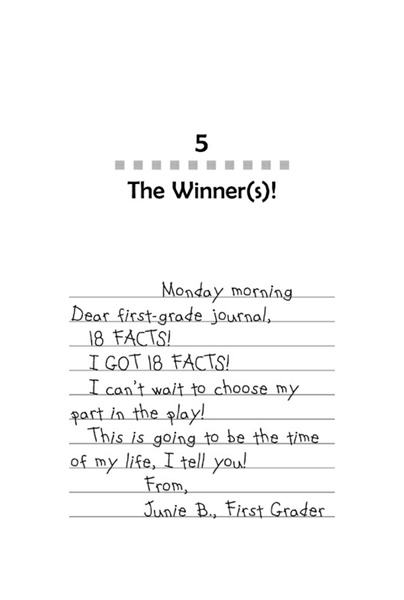 5
The Winner(s)!
Monday morning
Dear first-grade journal,
18 FACTS!
I GOT 18 FACTS!
I can't wait to choose my
part in the play!
This is going to be the time
of my life, I tell you!
From,
Junie B., First Grader